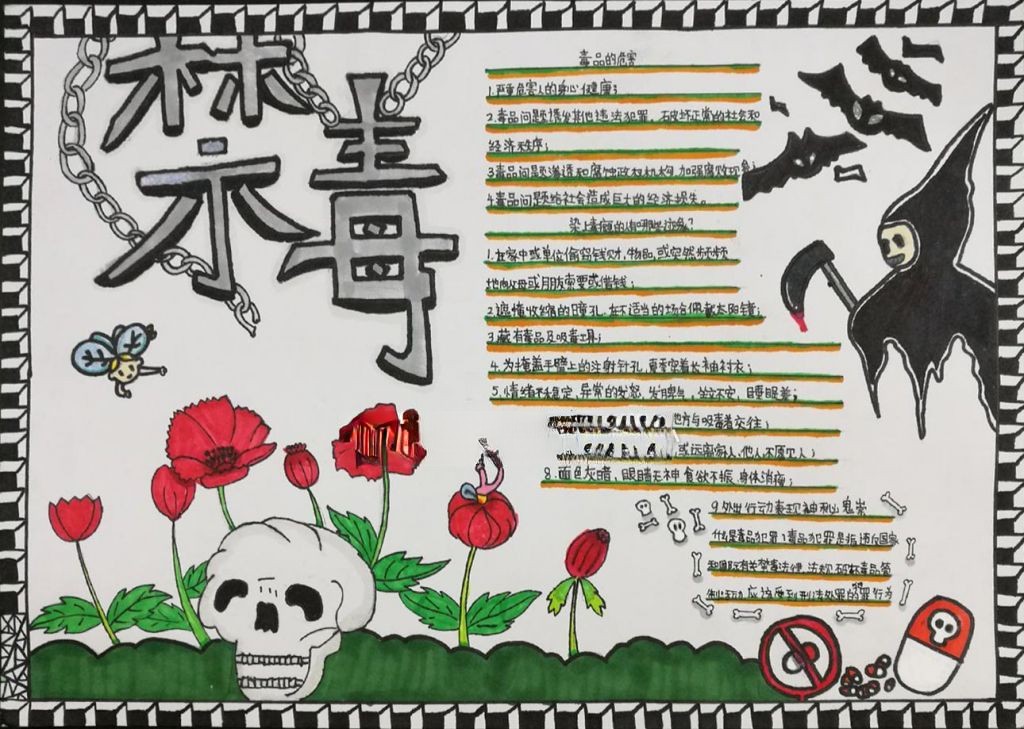 禁毒
毒品的危害
1.严重危害人的身心健康;
2.毒品问题诱发其他违法犯罪,破坏正常的社会和
经济秩序;
3毒品问题渗透和腐蚀政权机构,加强腐败现象;
4毒品问题给社会造成巨大的经济损失。
染上毒瘾的人有哪些迹象?
1.在家中或单位偷窃钱财,物品,或突然频频
地向父母或朋友索要或借钱;
2.遮掩收缩的瞳孔,在不适当的场合佩戴太阳镜;
3.藏有毒品及吸毒工具;
4.为掩盖手臂上的注射针孔,夏季穿着长袖衬衣;
5.情绪不稳定,异常的发怒,发脾气,坐立不安,睡眠差;
方与吸毒者交往;
或远离家人,他人不愿见人;
8.面色灰暗,眼睛无神食欲不振,身体消瘦;
9.外出行动表现神秘鬼祟
什么是毒品犯罪?毒品犯罪是指违反国家
和国际有关禁毒法律,法规,破坏毒品管
制活动,应该受到刑法处罚的罪行为